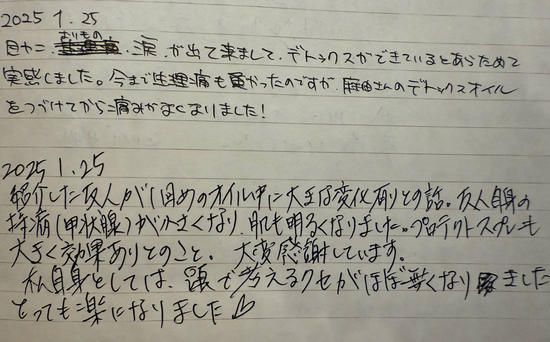 2025 1.25
目ヤニ、おりもの、涙が出て来まして、デトックスができているとあらためて
実感しました。今まで生理痛も重かったのですが、麻由さんのデトックスオイル
をつづけてから痛みがなくなりました!
2025 1.25
紹介した友人が1回めのオイル中に大きな変化有りとの話。友人自身の
持病(甲状腺)が小さくなり、肌も明るくなりました。プロテクトスプレーも
大きく効果ありとのこと。大変感謝しています。
私自身としては、頭で考えるクセがほぼ無くなりました
とっても楽になりました